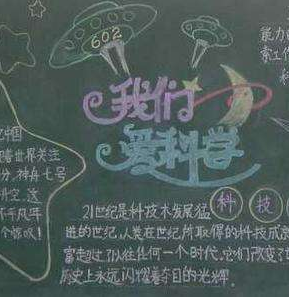 602
能力的
索工作
科
我们
爱科学
中国
着世界关注
分,神舟七号
升空。这
不平凡年
个惊叹!
科 技
21世纪是科技术发展猛
进的世纪,人类在世纪所取得的科技成
富超过了以往任何一个时代,它们改变了
历史上永远闪耀着夺目的光辉.